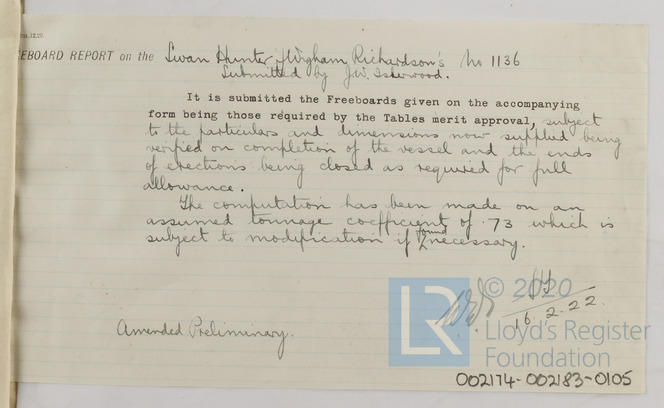 EEBOARD REPORT on the Swan Hunter & Wigham Richardson's No 1136
Submitted by J.W. Isherwood.
It is submitted the Freeboards given on the accompanying
form being those required by the Tables merit approval, subject
to the particulars and dimensions now supplied being
verified on completion of the vessel and the ends
of erections being closed as required for full
allowance.
The computation has been made on an
assumed tonnage coefficient of .73 which is
subject to modification if found necessary.
16.2.22
Amended Preliminary.
© 2020
LR
Lloyd's Register
Foundation
002174-002183-0105